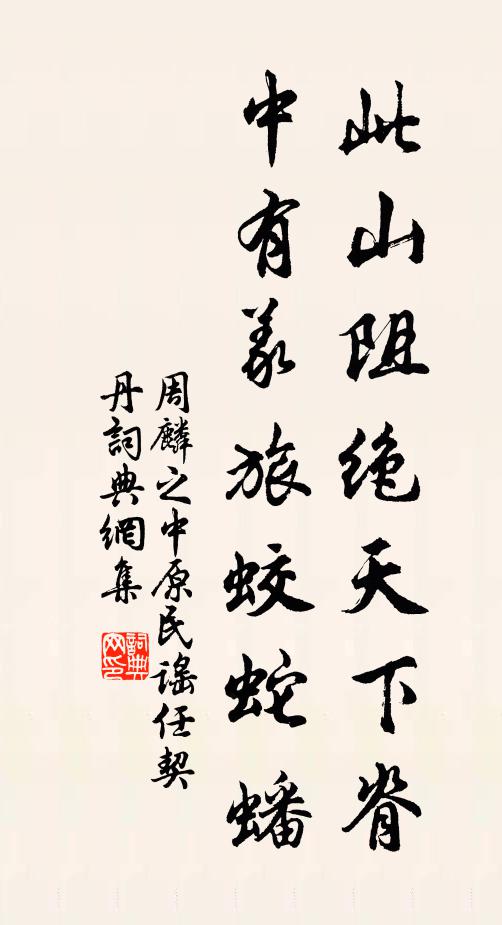 此山阻绝天下脊
中有义旅蛟蛇蟠
周麟之中原民謠任契
丹詞典網集
詞典网印